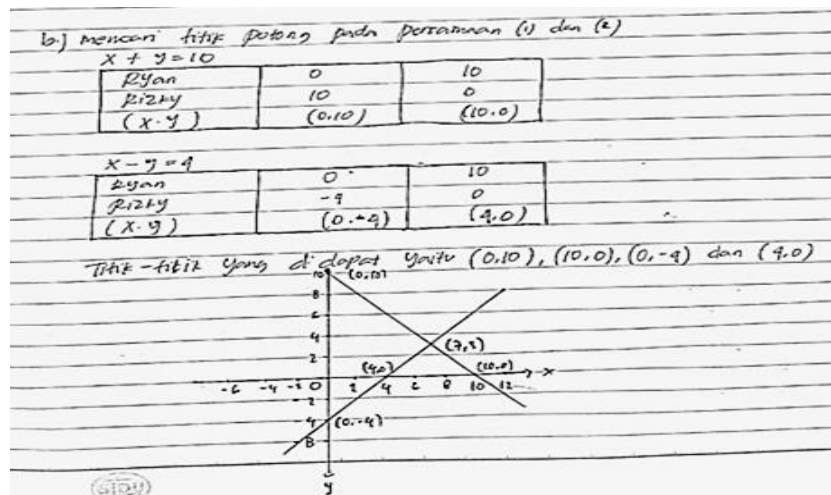 b.) mencari titik potong pada persamaan (1) dan (2)
x + y = 10
Ryan 0 10
Rizky 10 0
(x.y) (0.10) (10.0)
x - y = 4
Ryan 0 10
Rizky -4 0
(x.y) (0.-4) (4.0)
Titik-titik yang di dapat yaitu (0,10), (10,0), (0,-4) dan (4,0)
10 (0,10)
8
6
4
(7,3)
2
(4,0) (10.0)
-6 -4 -2 0 2 4 6 8 10 12 x
-2
4 (0,-4)
8
y